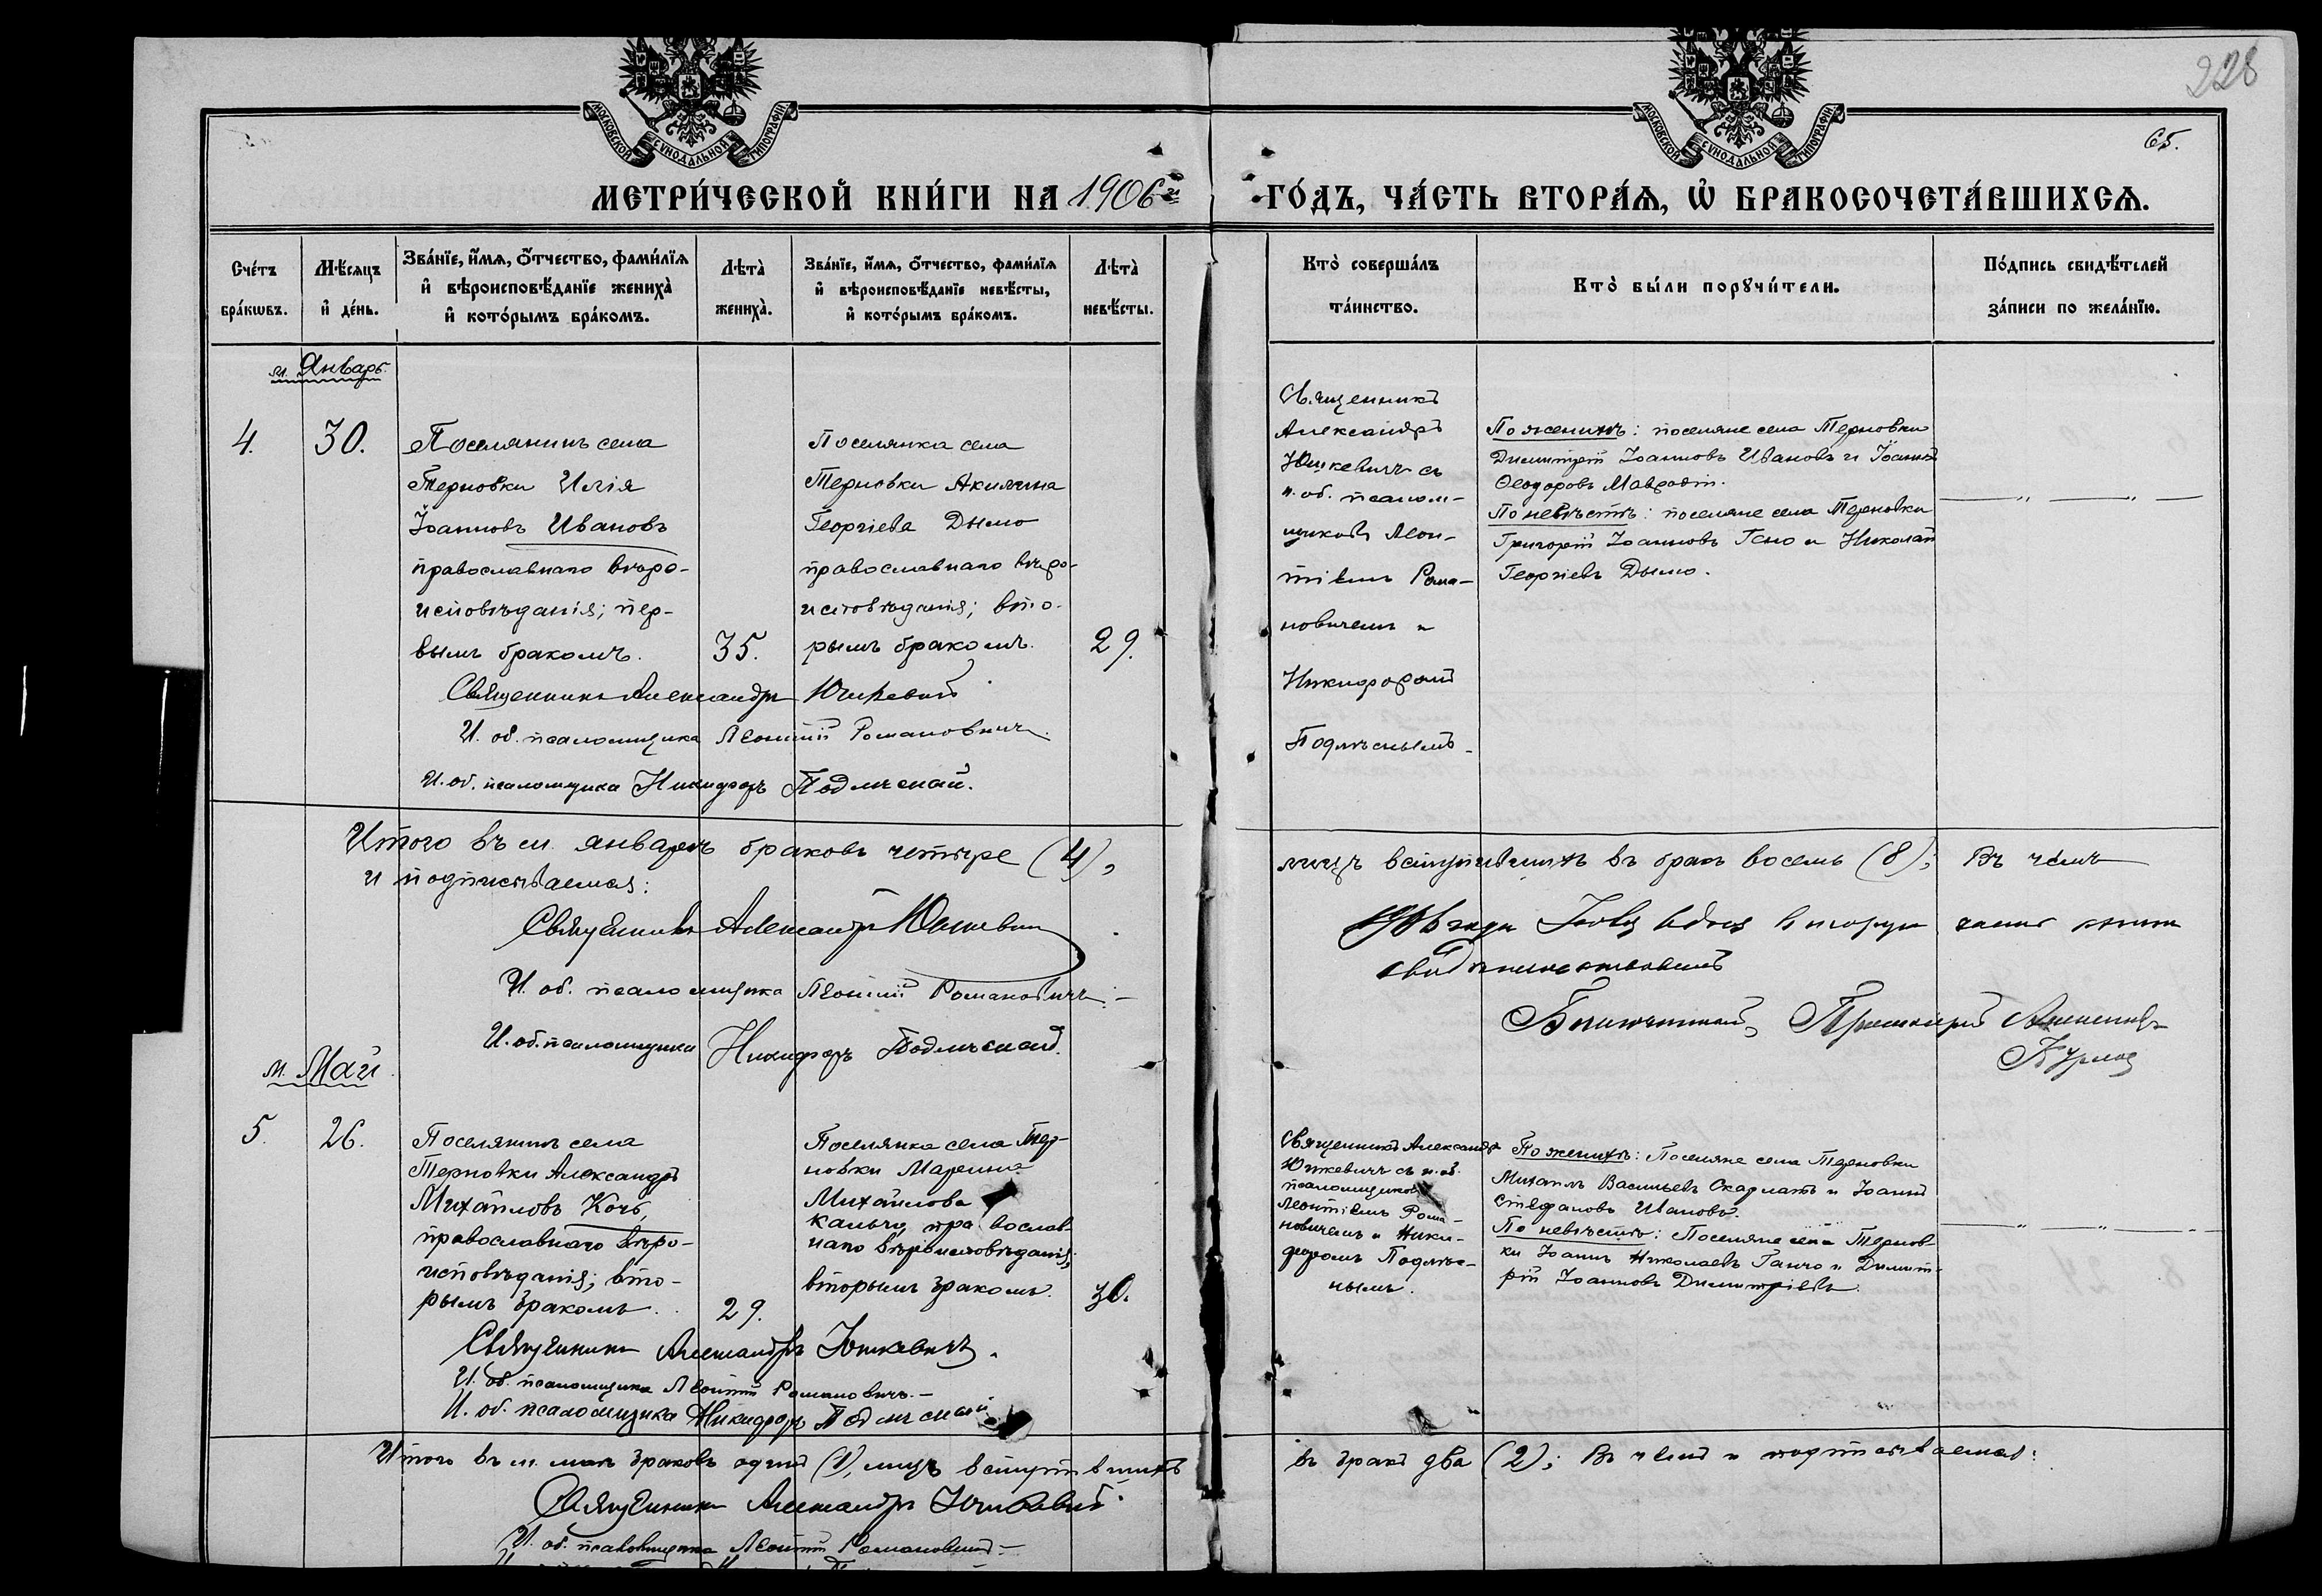 228
65.
МОСКОВСКОЙ СѴНОДАЛЬНОЙ ТИПОГРАФІИ
МОСКОВСКОЙ СѴНОДАЛЬНОЙ ТИПОГРАФІИ
МЕТРИ́ЧЕСКОЙ КНИ́ГИ НА 1906й
ГО́ДЪ, ЧА́СТЬ ВТОРА́Ѧ, Ѡ҆ БРАКОСОЧЕТА́ВШИХСѦ.
Сче́тъ бра́кѡвъ.
Мѣ́сяцъ и҆ де́нь.
Зва́нїе, и҆́мѧ, ѻ҆́тчество, фами́лїѧ и҆ вѣроисповѣ́данїе жениха̀ и҆ кото́рымъ бра́комъ.
Лѣта̀ жениха̀.
Зва́нїе, и҆́мѧ, ѻ҆́тчество, фами́лїѧ и҆ вѣроисповѣ́данїе невѣ́сты, и҆ кото́рымъ бра́комъ.
Лѣта̀ невѣ́сты.
Кто̀ соверша́лъ та́инство.
Кто̀ бы́ли порꙋчи́тели.
По́дпись свидѣ́телей за́писи по жела́нїю.
м. Январь.
4.
30.
Поселянинъ села
Терновки Илія
Іоанновъ Ивановъ
православнаго вѣро-
исповѣданія; пер-
вымъ бракомъ.
35.
Поселянка села
Терновки Акилина
Георгіева Дымо
православнаго вѣро-
исповѣданія; вто-
рымъ бракомъ.
29.
Священникъ
Александръ
Юшкевичъ съ
и. об. псалом-
щиковъ Леон-
тіемъ Рома-
новичемъ и
Никифоромъ
Подлѣснымъ.
По женихѣ: поселяне села Терновки
Димитрій Іоанновъ Ивановъ и Іоаннъ
Ѳеодоровъ Мавродій.
По невѣстѣ: поселяне села Терновки
Григорій Іоанновъ Гено и Николай
Георгіевъ Дымо.
Священникъ Александръ Юшкевичъ
И. об. псаломщика Леонтій Романовичъ.
И. об. псаломщика Никифоръ Подлѣсный.
Итого въ м. январѣ браковъ четыре (4),
лицъ вступившихъ въ бракъ восемь (8); Въ чемъ
и подписываемся:
Священникъ Александръ Юшкевичъ
И. об. псаломщика Леонтій Романовичъ.
И. об. псаломщика Никифоръ Подлѣсный.
1906 года
свидѣтельствовалъ
Благочинный, Протоіерей
м. Май
5.
26.
Поселянинъ села
Терновки Александръ
Михайловъ Кочъ,
православнаго вѣро-
исповѣданія; вто-
рымъ бракомъ.
29.
Поселянка села Тер-
новки Марина
Михайлова
Кальчу, православ-
наго вѣроисповѣданія;
вторымъ бракомъ.
30.
Священникъ Александръ
Юшкевичъ съ и. об.
псаломщиковъ
Леонтіемъ Рома-
новичемъ и Ники-
форомъ Подлѣс-
нымъ.
По женихѣ: Поселяне села Терновки
Михаилъ Васильевъ Скарлатъ и Іоаннъ
Стефановъ Ивановъ.
По невѣстѣ: Поселяне села Тернов-
ки Іоаннъ Николаевъ Ганчо и Димит-
рій Іоанновъ Димитріевъ.
Священникъ Александръ Юшкевичъ.
И. об. псаломщика Леонтій Романовичъ.
И. об. псаломщика Никифоръ Подлѣсный.
Итого въ м. маѣ браковъ одинъ (1), лицъ вступившихъ
въ бракъ два (2); Въ чемъ и подписываемся:
Священникъ Александръ Юшкевичъ
И. об. псаломщика Леонтій Романовичъ